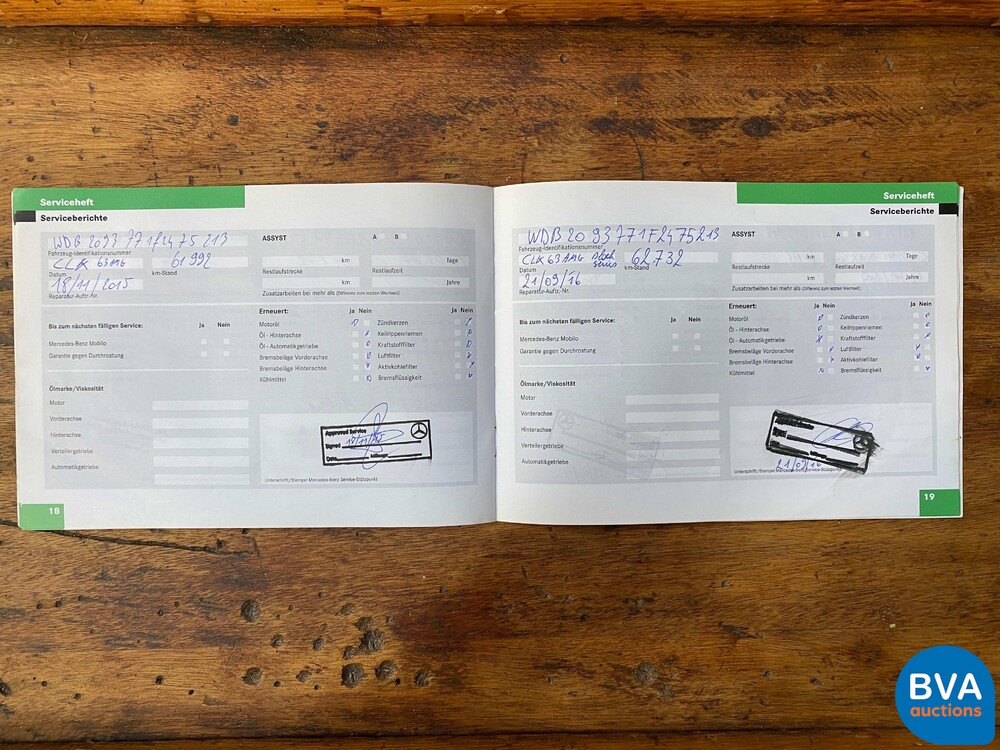 Serviceheft
Serviceberichte
WDB 2093 771F2475213
Fahrzeug-Identifikationsnummer
CLK 63 AMG 61992
Datum km-Stand
18/11/2015
Reparatur-Auftr.-Nr.
ASSYST A B
km Tage
Restlaufstrecke Restlaufzeit
km Jahre
Zusatzarbeiten bei mehr als (Differenz zum letzten Wechsel):
Bis zum nächsten fälligen Service: Ja Nein
Mercedes-Benz Mobilo
Garantie gegen Durchrostung
Erneuert: Ja Nein Ja Nein
Motoröl Zündkerzen
Öl - Hinterachse Keilrippenriemen
Öl - Automatikgetriebe Kraftstofffilter
Bremsbeläge Vorderachse Luftfilter
Bremsbeläge Hinterachse Aktivkohlefilter
Kühlmittel Bremsflüssigkeit
Ölmarke/Viskosität
Motor
Vorderachse
Hinterachse
Verteilergetriebe
Automatikgetriebe
Approved Service
Signed 18/11/15
Date
Unterschrift/Stempel Mercedes-Benz Service-Stützpunkt
18
Serviceheft
Serviceberichte
WDB 20 93771F2475213
Fahrzeug-Identifikationsnummer
CLK 63 AMG Black Series 62.732
Datum km-Stand
21/09/16
Reparatur-Auftr.-Nr.
ASSYST A B
km Tage
Restlaufstrecke Restlaufzeit
km Jahre
Zusatzarbeiten bei mehr als (Differenz zum letzten Wechsel):
Bis zum nächsten fälligen Service: Ja Nein
Mercedes-Benz Mobilo
Garantie gegen Durchrostung
Erneuert: Ja Nein Ja Nein
Motoröl Zündkerzen
Öl - Hinterachse Keilrippenriemen
Öl - Automatikgetriebe Kraftstofffilter
Bremsbeläge Vorderachse Luftfilter
Bremsbeläge Hinterachse Aktivkohlefilter
Kühlmittel Bremsflüssigkeit
Ölmarke/Viskosität
Motor
Vorderachse
Hinterachse
Verteilergetriebe
Automatikgetriebe
21/09/16
Unterschrift/Stempel Mercedes-Benz Service-Stützpunkt
19
BVA
auctions